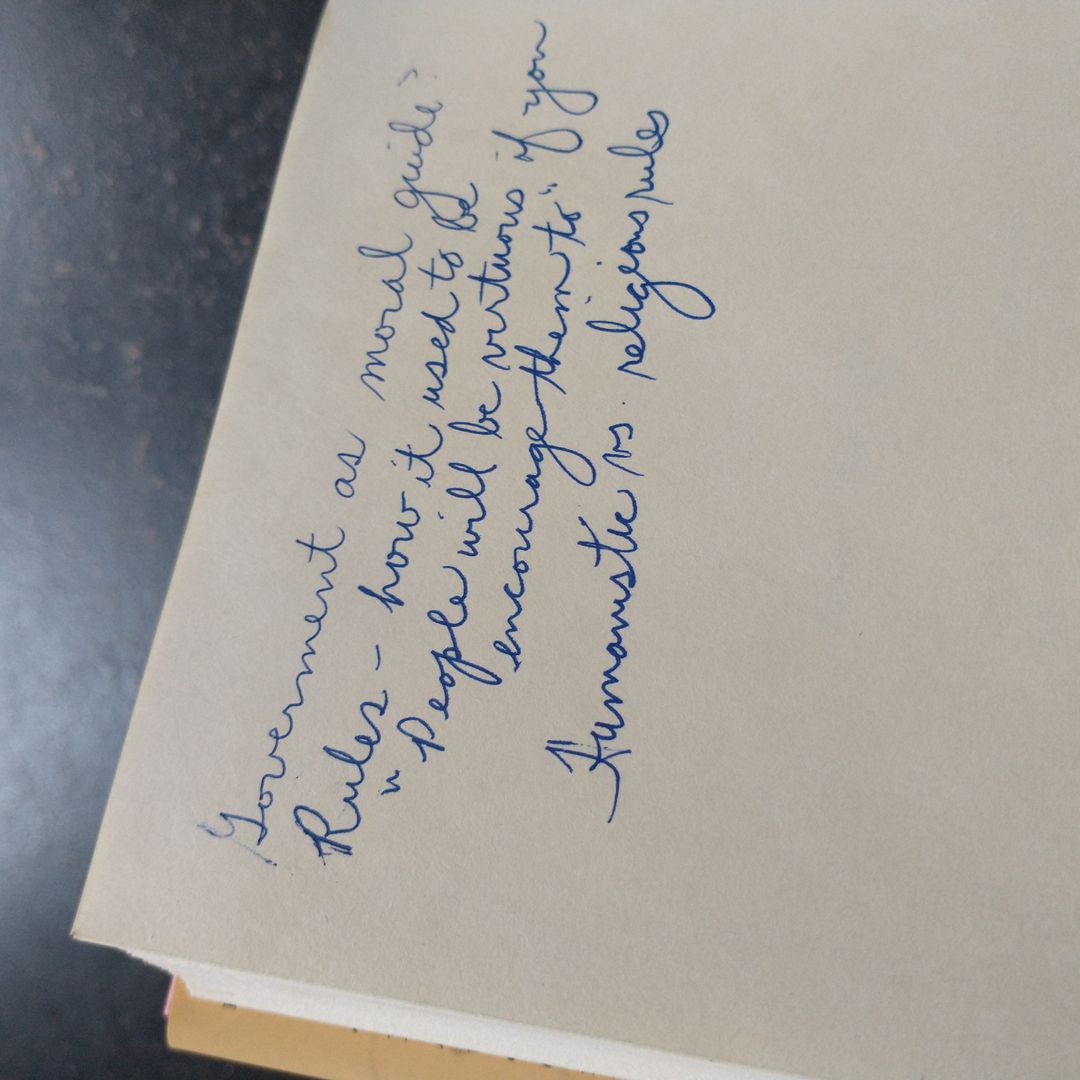 Government as moral guide?
Rules - how it used to be
"People will be virtuous if you
encourage them to".
Humanistic vs. religious rules